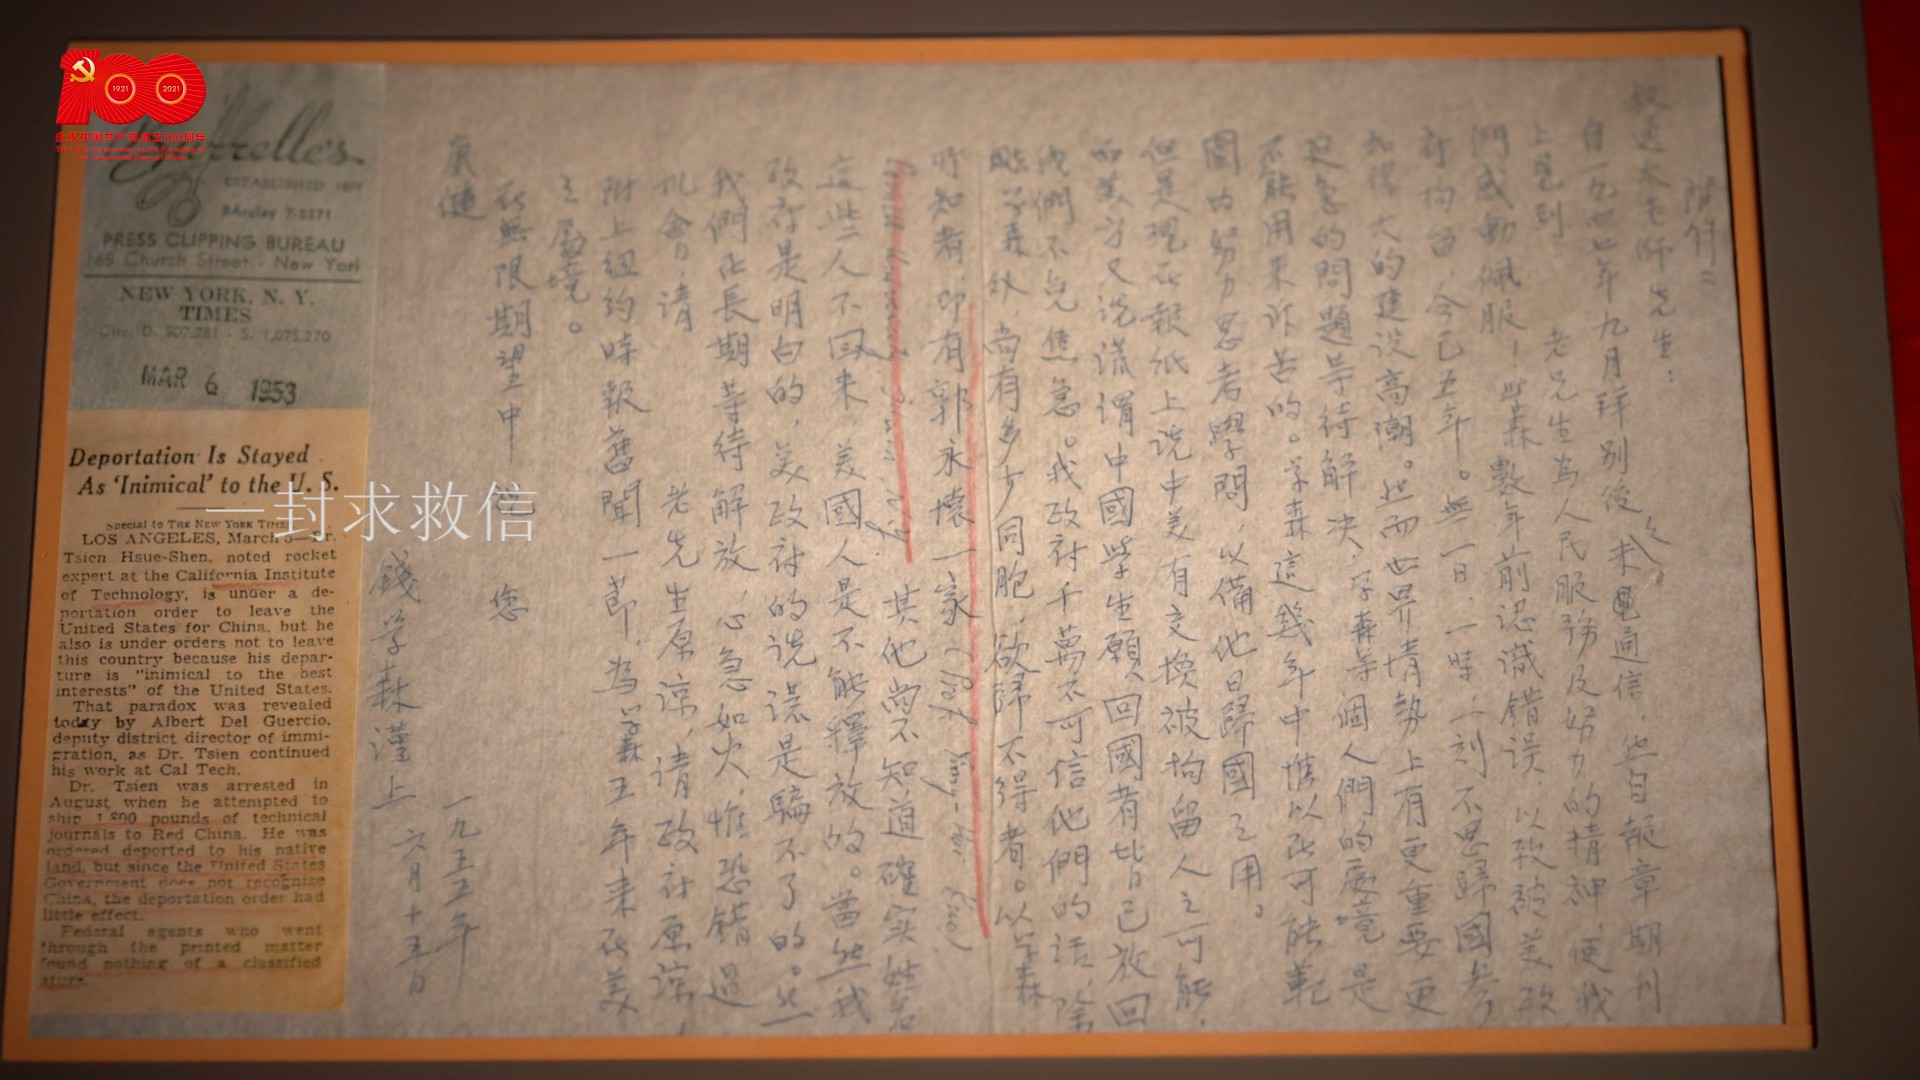 1921
2021
庆祝中国共产党成立100周年
ESTABLISHED 1888
BArclay 7-5371
PRESS CLIPPING BUREAU
165 Church Street - New York
NEW YORK, N. Y.
TIMES
Circ. D. 507,281 - S. 1,075,270
MAR 6 1953
Deportation Is Stayed
As 'Inimical' to the U. S.
Special to THE NEW YORK TIMES
LOS ANGELES, March
Tsien Hsue-Shen, noted rocket
expert at the California Institute
of Technology, is under a de-
portation order to leave the
United States for China, but he
also is under orders not to leave
this country because his depar-
ture is "inimical to the best
interests" of the United States.
That paradox was revealed
today by Albert Del Guercio,
deputy district director of immi-
gration, as Dr. Tsien continued
his work at Cal Tech.
Dr. Tsien was arrested in
August when he attempted to
ship 1,800 pounds of technical
journals to Red China. He was
ordered deported to his native
land, but since the United States
Government does not recognize
China, the deportation order had
little effect.
Federal agents who went
through the printed matter
found nothing of a classified
一封求救信
附件二
叔通太老師先生：
自一九四七年九月拜別後久未通信，然自報章期刊
上見到 老先生為人民服務及努力的精神，使我
們感動佩服！學森數年前認識錯誤，以致被美政
府拘留，今已五年。無一日、一時、一刻不思歸國參
加偉大的建設高潮。然而世界情勢上有更重要更
迫急的問題等待解決，學森等個人們的處境是
不能用來訴苦的。學森這幾年中惟以在可能範
圍內努力思考學問，以備他日歸國之用。
但是現在報紙上說中美有交換被拘留人之可能，
而美方又說謊謂中國學生願回國者皆已放回
我們不免焦急。我政府千萬不可信他們的話，除
學森外，尚有多少同胞，欲歸不得者。以學森
所知者，即有郭永懷一家
其他尚不知道確實姓名
這些人不回來，美國人是不能釋放的。當然我
政府是明白的，美政府的說謊是騙不了的。然
我們在長期等待解放，心急如火，惟恐錯過
機會，請 老先生原諒，請政府原諒，
附上紐約時報舊聞一節，為學森五年來在美
之處境。
在無限期望中 您
康健
錢学森謹上
一九五五年
六月十五日